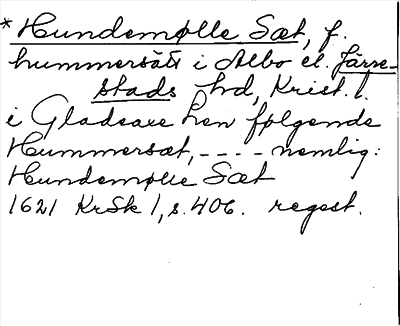 * Hundemølle Sæt, f.
hummersätt i Albo el. Järre-
stads hd, Krist. l.
i Gladsaxe Len følgende
Hummersæt, - - - - nemlig:
Hundemølle Sæt
1621 KrSk 1, s. 406. regest.